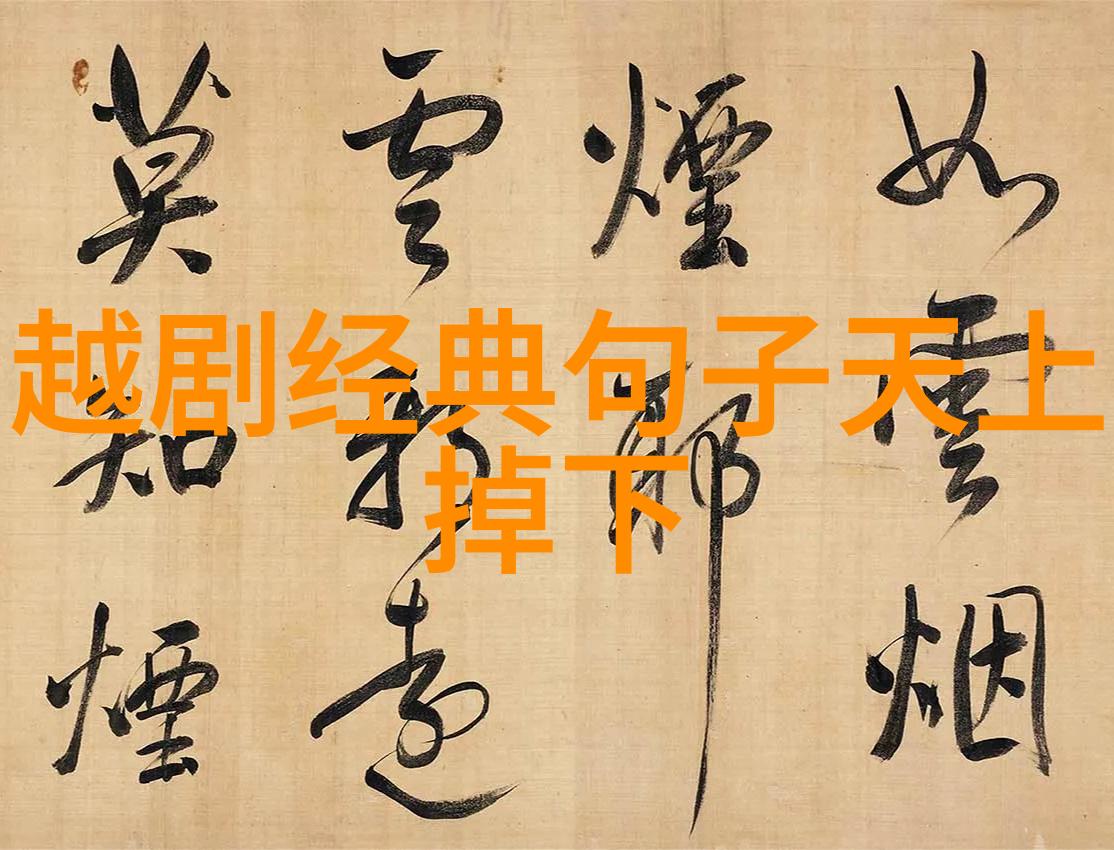 越剧经典句子天上
掉下
如雲烟
煙耶
雲耶遠
莫知煙